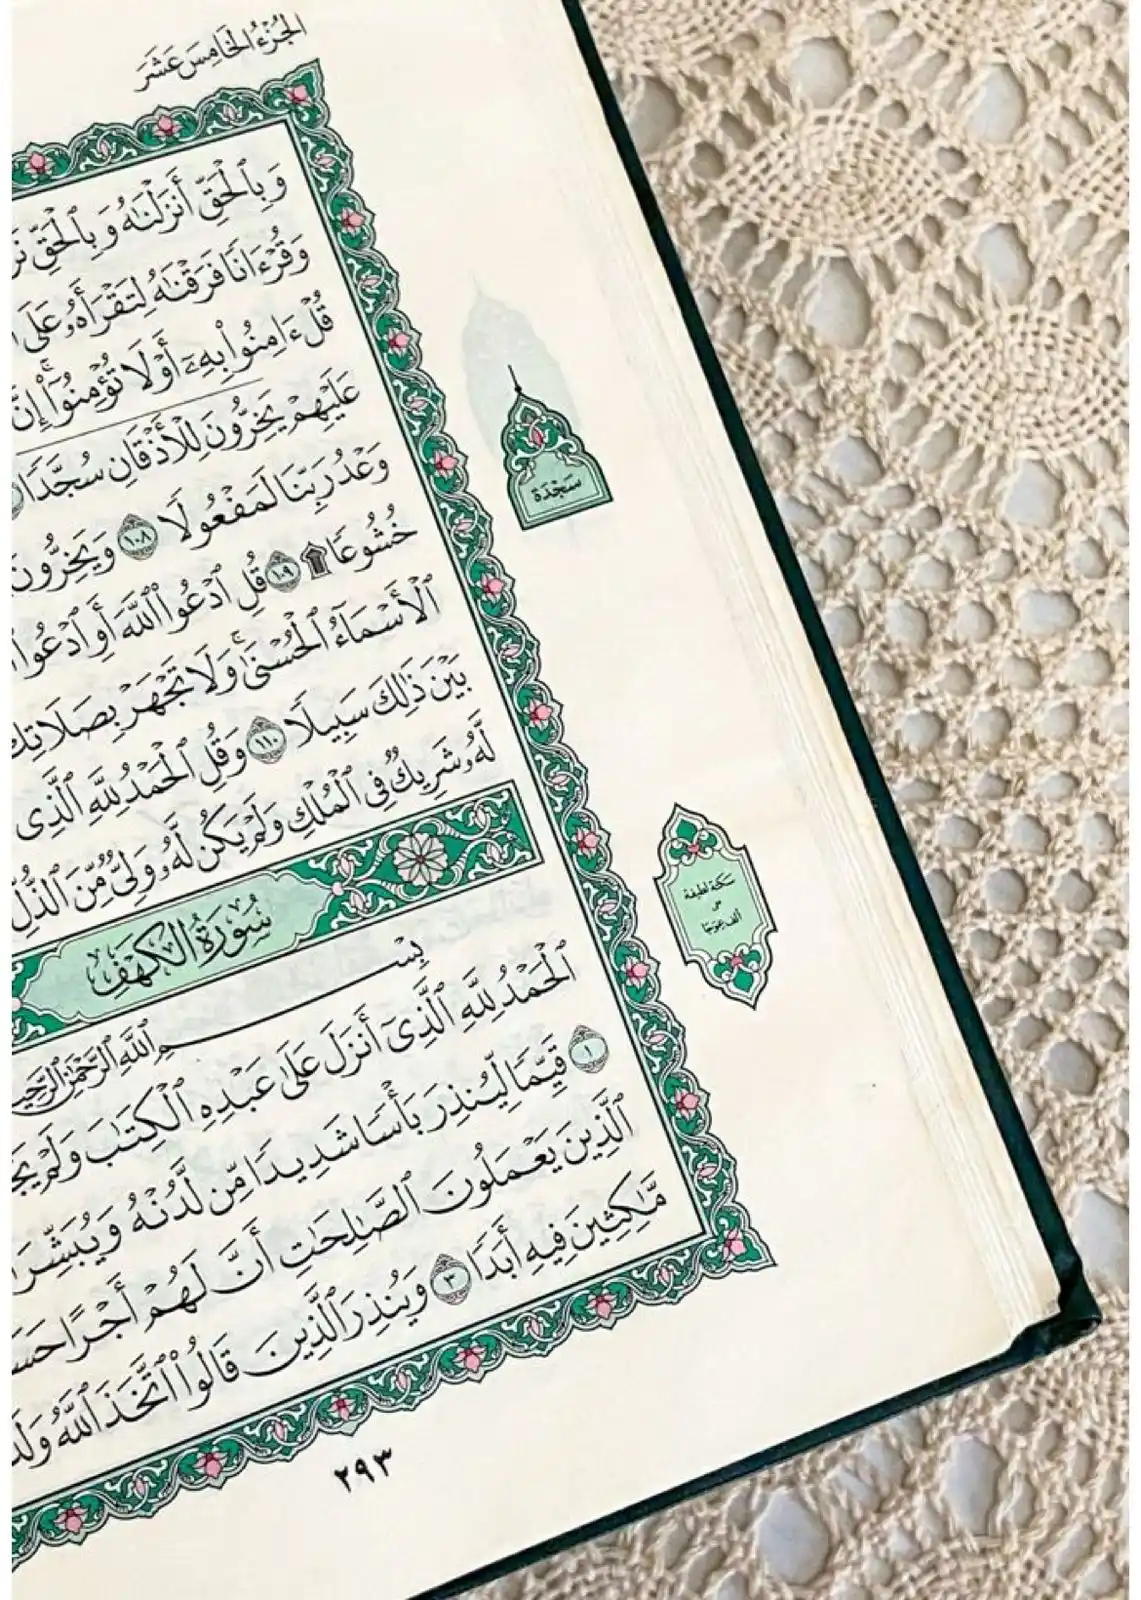 الجُزْءُ الخَامِسَ عَشَرَ
وَبِٱلۡحَقِّ أَنزَلۡنَٰهُ وَبِٱلۡحَقِّ
وَقُرۡءَانٗا فَرَقۡنَٰهُ لِتَقۡرَأَهُۥ عَلَى
قُلۡ ءَامِنُواْ بِهِۦٓ أَوۡ لَا تُؤۡمِنُوٓاْۚ إِنَّ
عَلَيۡهِمۡ يَخِرُّونَۤ لِلۡأَذۡقَانِۤ سُجَّدٗاۤ
وَعۡدُ رَبِّنَا لَمَفۡعُولٗا ١٠٨ وَيَخِرُّونَ
خُشُوعٗا۩ ١٠٩ قُلِ ٱدۡعُواْ ٱللَّهَ أَوِ ٱدۡعُواْ
ٱلۡأَسۡمَآءُ ٱلۡحُسۡنَىٰۚ وَلَا تَجۡهَرۡ بِصَلَاتِكَ
بَيۡنَ ذَٰلِكَ سَبِيلٗا ١١٠ وَقُلِ ٱلۡحَمۡدُ لِلَّهِ ٱلَّذِي
لَّهُۥ شَرِيكٞ فِي ٱلۡمُلۡكِ وَلَمۡ يَكُن لَّهُۥ وَلِيّٞ مِّنَ ٱلذُّلِّ
سَجْدَة
سُورَةُ الكَهۡفِ
بِسۡمِ ٱللَّهِ ٱلرَّحۡمَٰنِ ٱلرَّحِيمِ
ٱلۡحَمۡدُ لِلَّهِ ٱلَّذِيٓ أَنزَلَ عَلَىٰ عَبۡدِهِ ٱلۡكِتَٰبَ وَلَمۡ
١ قَيِّمٗا لِّيُنذِرَ بَأۡسٗا شَدِيدٗا مِّن لَّدُنۡهُ وَيُبَشِّرَ
ٱلَّذِينَ يَعۡمَلُونَ ٱلصَّٰلِحَٰتِ أَنَّ لَهُمۡ أَجۡرًا
مَّٰكِثِينَ فِيهِ أَبَدٗا ٣ وَيُنذِرَ ٱلَّذِينَ قَالُواْ ٱتَّخَذَ ٱللَّهُ
سكتة لطيفة
على
ألف عوجا
٢٩٣